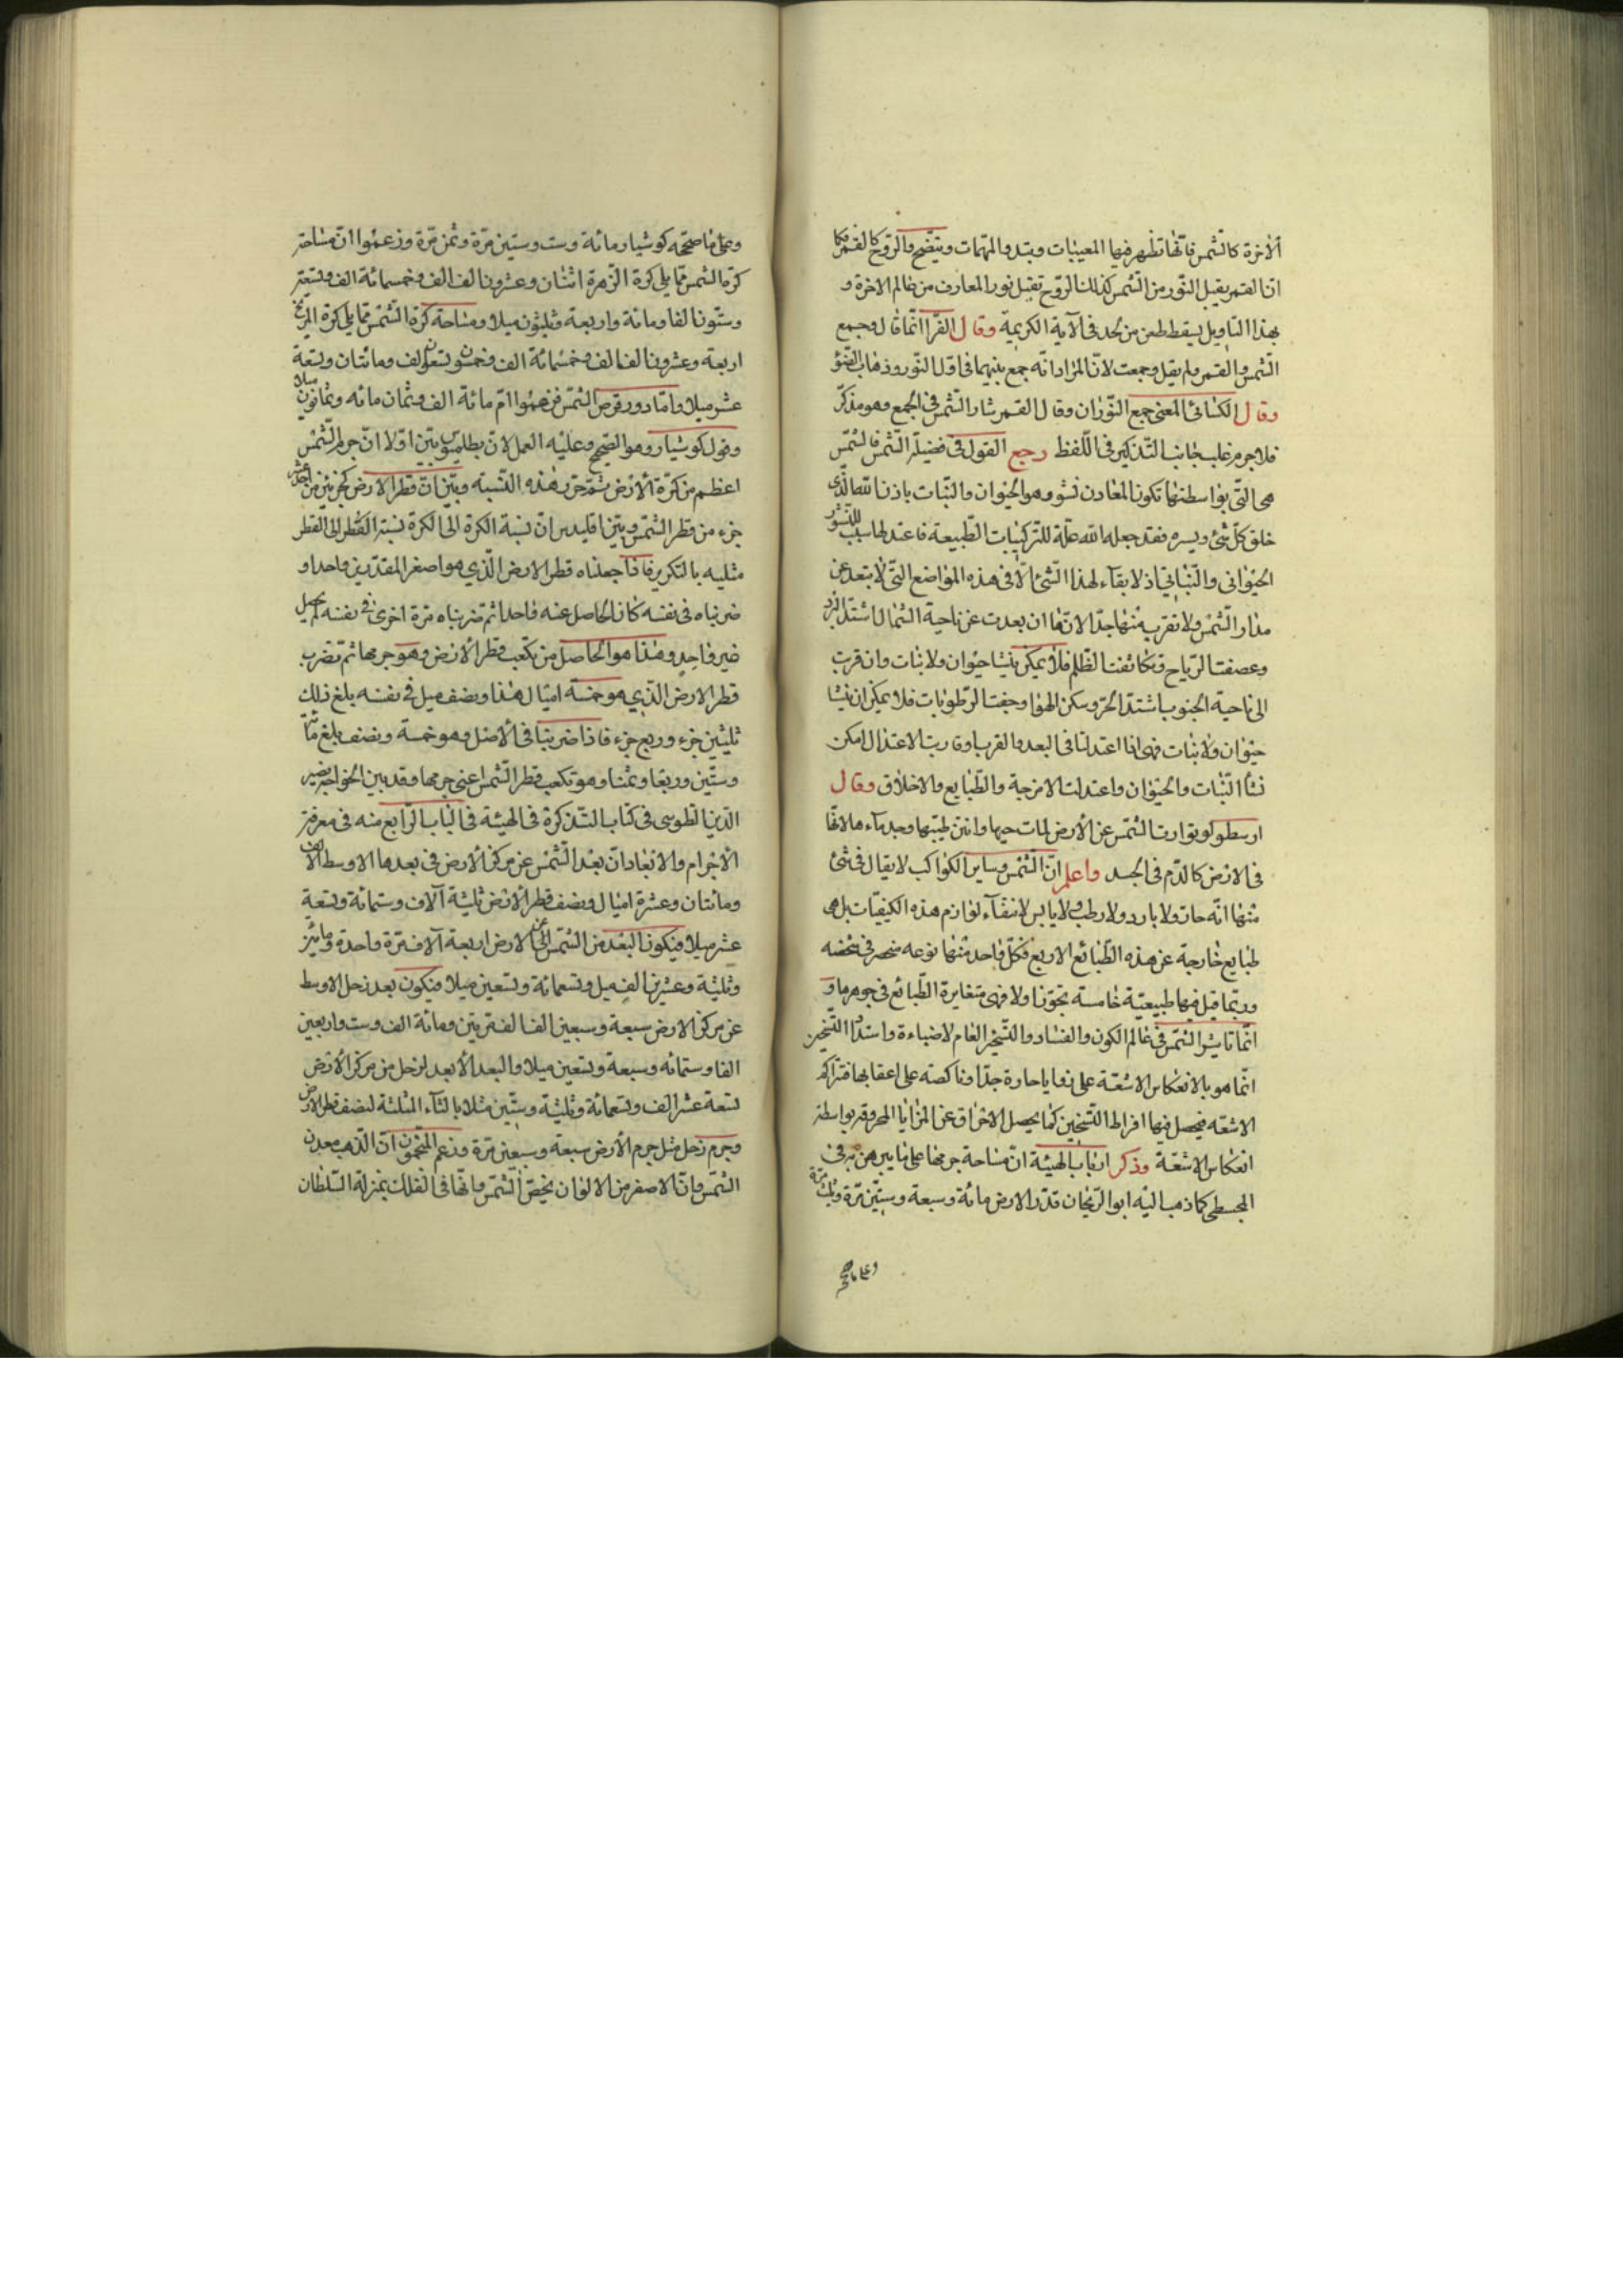 ألاخرة كالشمس فانها تظهر فيها المعيبات وتبدو المهمات ويتضح والروح كالقمر فكما
ان القمر يقبل النور من الشمس كذلك الروح تقبل نور المعارف من عالم الاخرة و
بهذا التاويل يسقط طعن من يلحد فى الآية الكريمة وقال الفرا انما قال وجمع
الشمس والقمر ولم يقل وجمعت لان المراد انه جمع بينهما فى اول النور وذهاب الضوء
وقال الكسائى المعنى جمع النوران وقال القمر شارك الشمس فى الجمع وهو مذكر
فلا جرم غلب جانب التذكير فى اللفظ رجع القول فى فضيلة الشمس فالشمس
هى التى بواسطتها تكون المعادن نشو وهو الحيوان والنبات باذن الله الذى
خلق كل شئ ويسره فقد جعله الله علة للتركيبات الطبيعة فاعتد لها سبب للنشو
الحيوانى والنباتى اذ لا بقآء لهذا الشئ الا فى هذه المواضع التى لا تبعد عن
مدار الشمس ولا تقرب منها جدا لانها ان بعدت عن ناحية الشمال اشتد البرد
وعصفت الرياح وتكاثفت الظلم فلا يمكن ينشا حيوان ولا نبات وان قربت
الى ناحية الجنوب اشتد الحر وسكن الهوا وجفت الرطوبات فلا يمكن ان ينشا
حيوان ولا نبات فهى اذا اعتدلت فى البعد والقرب او قاربت الاعتدال امكن
نشأ النبات والحيوان واعتدلت الامزجة والطبايع والاخلاق وقال
ارسطو لو توارت الشمس عن الأرض لمات حيها وانتن طيبها وجمد مآءها لانها
فى الارض كالدم فى الجسد واعلم ان الشمس وساير الكواكب لا يقال فى شئ
منها انه حار ولا بارد ولا رطب ولا يابس لانتفآء لوازم هذه الكيفيات بل هى
طبايع خارجة عن هذه الطبائع الاربع فكل واحد منها نوعه منحصر فى شخصه
وربما قيل فيها طبيعية خامسة تجوزا والا فهى متغايرة الطبائع فى جوهرها و
انما تاثير الشمس فى عالم الكون والفساد والتسخير العام لاضاءة واستداد التسخين
انما هو بالانعكاس الاشعة على زوايا حارة جدا وناكصة على اعقابها فتراكم
الاشعة فيحصل فيها افراط التسخين كما يحصل الاحراق عن المرايا المحروقة بواسطة
انعكاس الاشعة وذكر ارباب الهيئة ان مساحة جرمها على ما يبرهن به فى
المجسطى كما ذهب اليه ابو الريحان قدر الارض مائة وسبعة وستين مرة وثلث مرة
وعلى ما صححه
وعلى ما صححه كوشيار ومائة وست وستين مرة وثمن مرة وزعموا ان مساحة
كرة الشمس مما يلى كرة الزهرة اثنان وعشرون الف الف وخمسمائة الف وتسعة
وستون الفا ومائة واربعة وثلثون ميلا ومساحة كرة الشمس مما يلى كرة المريخ
اربعة وعشرون الف الف وخمسمائة الف وخمس وتسعون الف ومائتان وتسعة
عشر ميلا واما دور قرص الشمس فزعموا ان مائة الف وثمان مائه وثمانون ميلا
وقول كوشيار وهو الصحيح وعليه العمل لان بطلميوس بين اولا ان جرم الشمس
اعظم من كرة ألارض ثم حرر هذه النسبة وبين ان قطر الارض كجزئين من احد عشر
جزء من قطر الشمس وبين اقليدس ان نسبة الكرة الى الكرة نسبة القطر الى القطر
مثليه بالتكرير فاذا جعلناه قطر الارض الذى هو اصغر المقدرين واحدا و
ضربناه فى نفسه كان الحاصل عنه واحدا ثم ضربناه مرة اخرى فى نفسه لم يحصل
غير واحد وهذا هو الحاصل من تكعب قطر ألارض وهو جرمها ثم تضرب
قطر الارض الذى هو خمسة اميال هذا ونصف ميل فى نفسه بلغ ذلك
ثلثين جزء وربع جزء فاذا ضربتا فى ألاصل وهو خمسة ونصف بلغ مائة
وستين وربعا وثمنا وهو تكعب قطر الشمس اعنى جرمها وقد بين الخواجه نصير
الدين الطوسى فى كتاب التذكرة فى الهيئة فى الباب الرابع منه فى معرفة
الاجرام والابعاد ان بعد الشمس عن مركز ألارض فى بعدها الاوسط الف الف
ومائتان وعشرة اميال ونصف قطر ألارض ثلثة آلاف وستمائة وتسعة
عشر ميلا فيكون البعد من الشمس الى الارض اربعة آلاف مرة واحدة ومائة
وثلثة وعشرين الف ميل وتسعمائة وتسعين ميلا فيكون بعد زحل الاوسط
عن مركز الارض سبعة وسبعين الفا لف مرتين ومائة الف وست واربعين
الفا وستمائه وسبعة وتسعين ميلا والبعد الأبعد لزحل من مركز الأرض
تسعة عشر الف وتسعمائة وثلثة وستين مثلا بالثآء المثلثة لنصف قطر الارض
وجرم زحل مثل جرم الأرض سبعة وسبعين مرة وزعم المنجمون ان الذهب معدن
الشمس وان الاصفر من الالوان يخص الشمس وانها فى الفلك بمنزلة السلطان